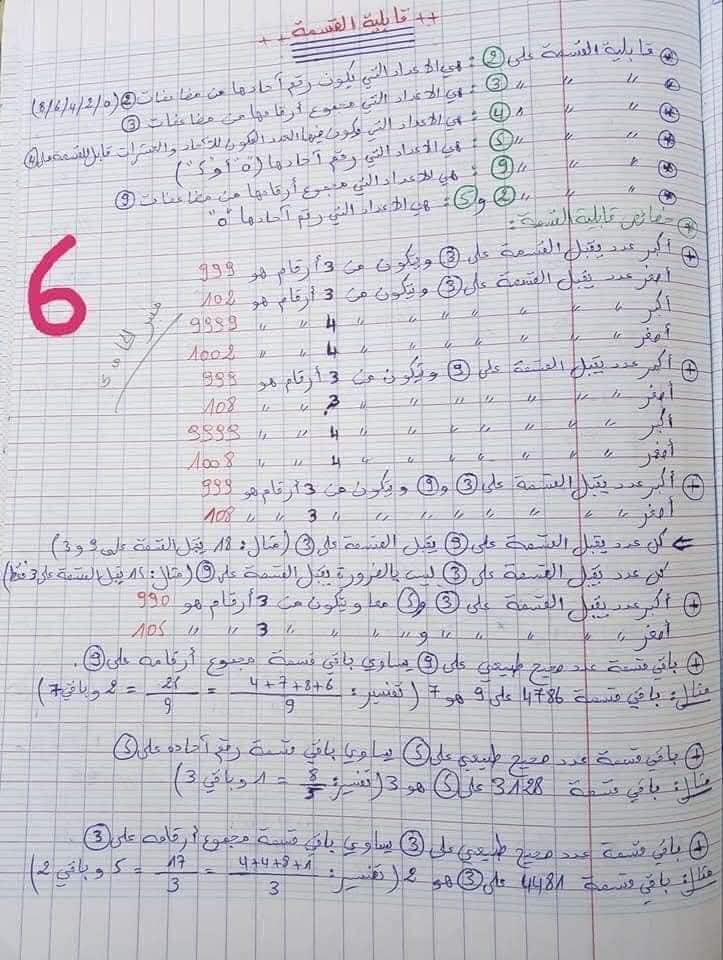 ++ قابلية القسمة ++
* قابلية القسمة على 2 : هي الأعداد التي يكون رقم آحادها من مضاعفات 2 (0/2/4/6/8)
* " " " 3 : هي الأعداد التي مجموع أرقامها من مضاعفات 3
* " " " 4 : هي الأعداد التي يكون فيها العدد المكون للآحاد والعشرات قابل للقسمة على 4
* " " " 5 : هي الأعداد التي رقم آحادها (0 أو 5)
* " " " 9 : هي الأعداد التي مجموع أرقامها من مضاعفات 9
* " " " 2 و 5 : هي الأعداد التي رقم آحادها "0"
+ خصائص قابلية القسمة :
+ أكبر عدد يقبل القسمة على 3 ويتكون من 3 أرقام هو 999
أصغر عدد يقبل القسمة على 3 ويتكون من 3 أرقام هو 102
أكبر " " " " " " 4 " " 9999
أصغر " " " " " " 4 " " 1002
+ أكبر عدد يقبل القسمة على 9 ويتكون من 3 أرقام هو 999
أصغر " " " " " " 3 " " 108
أكبر " " " " " " 4 " " 9999
أصغر " " " " " " 4 " " 1008
+ أكبر عدد يقبل القسمة على 3 و 9 ويتكون من 3 أرقام هو 999
أصغر " " " " " " " 3 " " 108
<= كل عدد يقبل القسمة على 9 يقبل القسمة على 3 (مثال : 18 يقبل القسمة على 9 و 3)
كل عدد يقبل القسمة على 3 ليس بالضرورة يقبل القسمة على 9 (مثال : 15 يقبل القسمة على 3 فقط)
+ أكبر عدد يقبل القسمة على 3 و 5 معا ويتكون من 3 أرقام هو 990
أصغر " " " " " و " " " " 3 " " 105
+ باقي قسمة عدد صحيح طبيعي على 9 يساوي باقي قسمة مجموع أرقامه على 9 .
مثال : باقي قسمة 4786 على 9 هو 7 (تفسير : 4+7+8+6/9 = 25/9 = 2 وباقي 7)
+ باقي قسمة عدد صحيح طبيعي على 5 يساوي باقي قسمة رقم آحاده على 5
مثال : باقي قسمة 3128 على 5 هو 3 (تفسير : 8/5 = 1 وباقي 3)
+ باقي قسمة عدد صحيح طبيعي على 3 يساوي باقي قسمة مجموع أرقامه على 3
مثال : باقي قسمة 4481 على 3 هو 2 (تفسير : 4+4+8+1/3 = 17/3 = 5 وباقي 2)
6